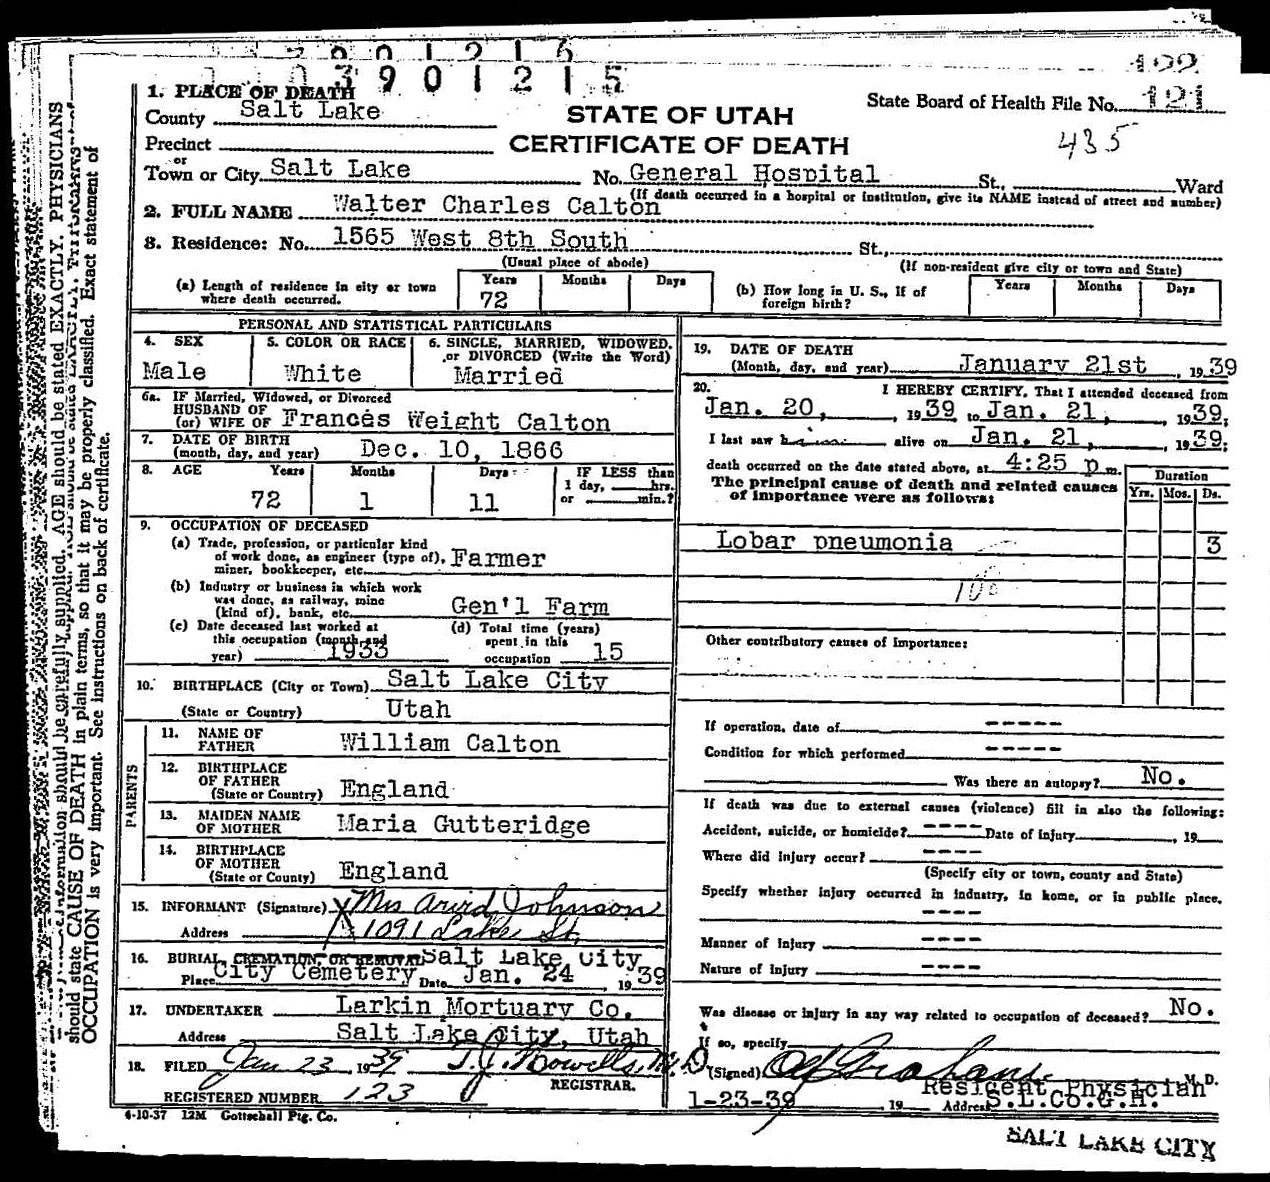 3901215
1. PLACE OF DEATH
State Board of Health File No. 121
County Salt Lake
STATE OF UTAH
435
Precinct
CERTIFICATE OF DEATH
or
Town or City Salt Lake No. General Hospital St., Ward
(If death occurred in a hospital or institution, give its NAME instead of street and number)
2. FULL NAME Walter Charles Calton
3. Residence: No. 1565 West 8th South St.,
(Usual place of abode) (If non-resident give city or town and State)
(a) Length of residence in city or town where death occurred. Years 72 Months Days
(b) How long in U. S., if of foreign birth? Years Months Days
PERSONAL AND STATISTICAL PARTICULARS
4. SEX Male
5. COLOR OR RACE White
6. SINGLE, MARRIED, WIDOWED, or DIVORCED (Write the Word) Married
6a. IF Married, Widowed, or Divorced
HUSBAND OF
(or) WIFE OF Frances Weight Calton
7. DATE OF BIRTH
(month, day, and year) Dec. 10, 1866
8. AGE Years 72 Months 1 Days 11 IF LESS than 1 day, hrs. or min.?
9. OCCUPATION OF DECEASED
(a) Trade, profession, or particular kind
of work done, as engineer (type of), Farmer
miner, bookkeeper, etc.
(b) Industry or business in which work
was done, as railway, mine
(kind of), bank, etc. Gen'l Farm
(c) Date deceased last worked at
this occupation (month and
year) 1933
(d) Total time (years)
spent in this
occupation 15
10. BIRTHPLACE (City or Town) Salt Lake City
(State or Country) Utah
PARENTS
11. NAME OF
FATHER William Calton
12. BIRTHPLACE
OF FATHER
(State or Country) England
13. MAIDEN NAME
OF MOTHER Maria Gutteridge
14. BIRTHPLACE
OF MOTHER
(State or County) England
15. INFORMANT (Signature) X Mrs Arvid Johnson
Address 1091 Lake St.
16. BURIAL, CREMATION, OR REMOVAL Salt Lake City
Place City Cemetery Date Jan. 24 1939
17. UNDERTAKER Larkin Mortuary Co.
Address Salt Lake City, Utah
18. FILED Jan 23 1939 T.J. Howells, M.D.
REGISTRAR.
REGISTERED NUMBER 123
4-10-37 12M Gottschall Ptg. Co.
19. DATE OF DEATH
(Month, day, and year) January 21st, 1939
20. I HEREBY CERTIFY, That I attended deceased from
Jan. 20, 1939 to Jan. 21, 1939;
I last saw him alive on Jan. 21, 1939;
death occurred on the date stated above, at 4:25 p m.
The principal cause of death and related causes
of importance were as follows:
Duration
Yrs. Mos. Ds.
Lobar pneumonia 3
Other contributory causes of importance:
If operation, date of -----
Condition for which performed -----
Was there an autopsy? No.
If death was due to external causes (violence) fill in also the following:
Accident, suicide, or homicide? ---- Date of injury , 19
Where did injury occur? ----
(Specify city or town, county and State)
Specify whether injury occurred in industry, in home, or in public place.
----
Manner of injury ----
Nature of injury ----
Was disease or injury in any way related to occupation of deceased? No.
If so, specify
(Signed) Graham M. D.
Resident Physician
1-23-39 , 19 Address S.L.Co.G.H.
SALT LAKE CITY
should be carefully supplied. AGE should be stated EXACTLY. PHYSICIANS
should state CAUSE OF DEATH in plain terms, so that it may be properly classified. Exact statement of
OCCUPATION is very important. See instructions on back of certificate.